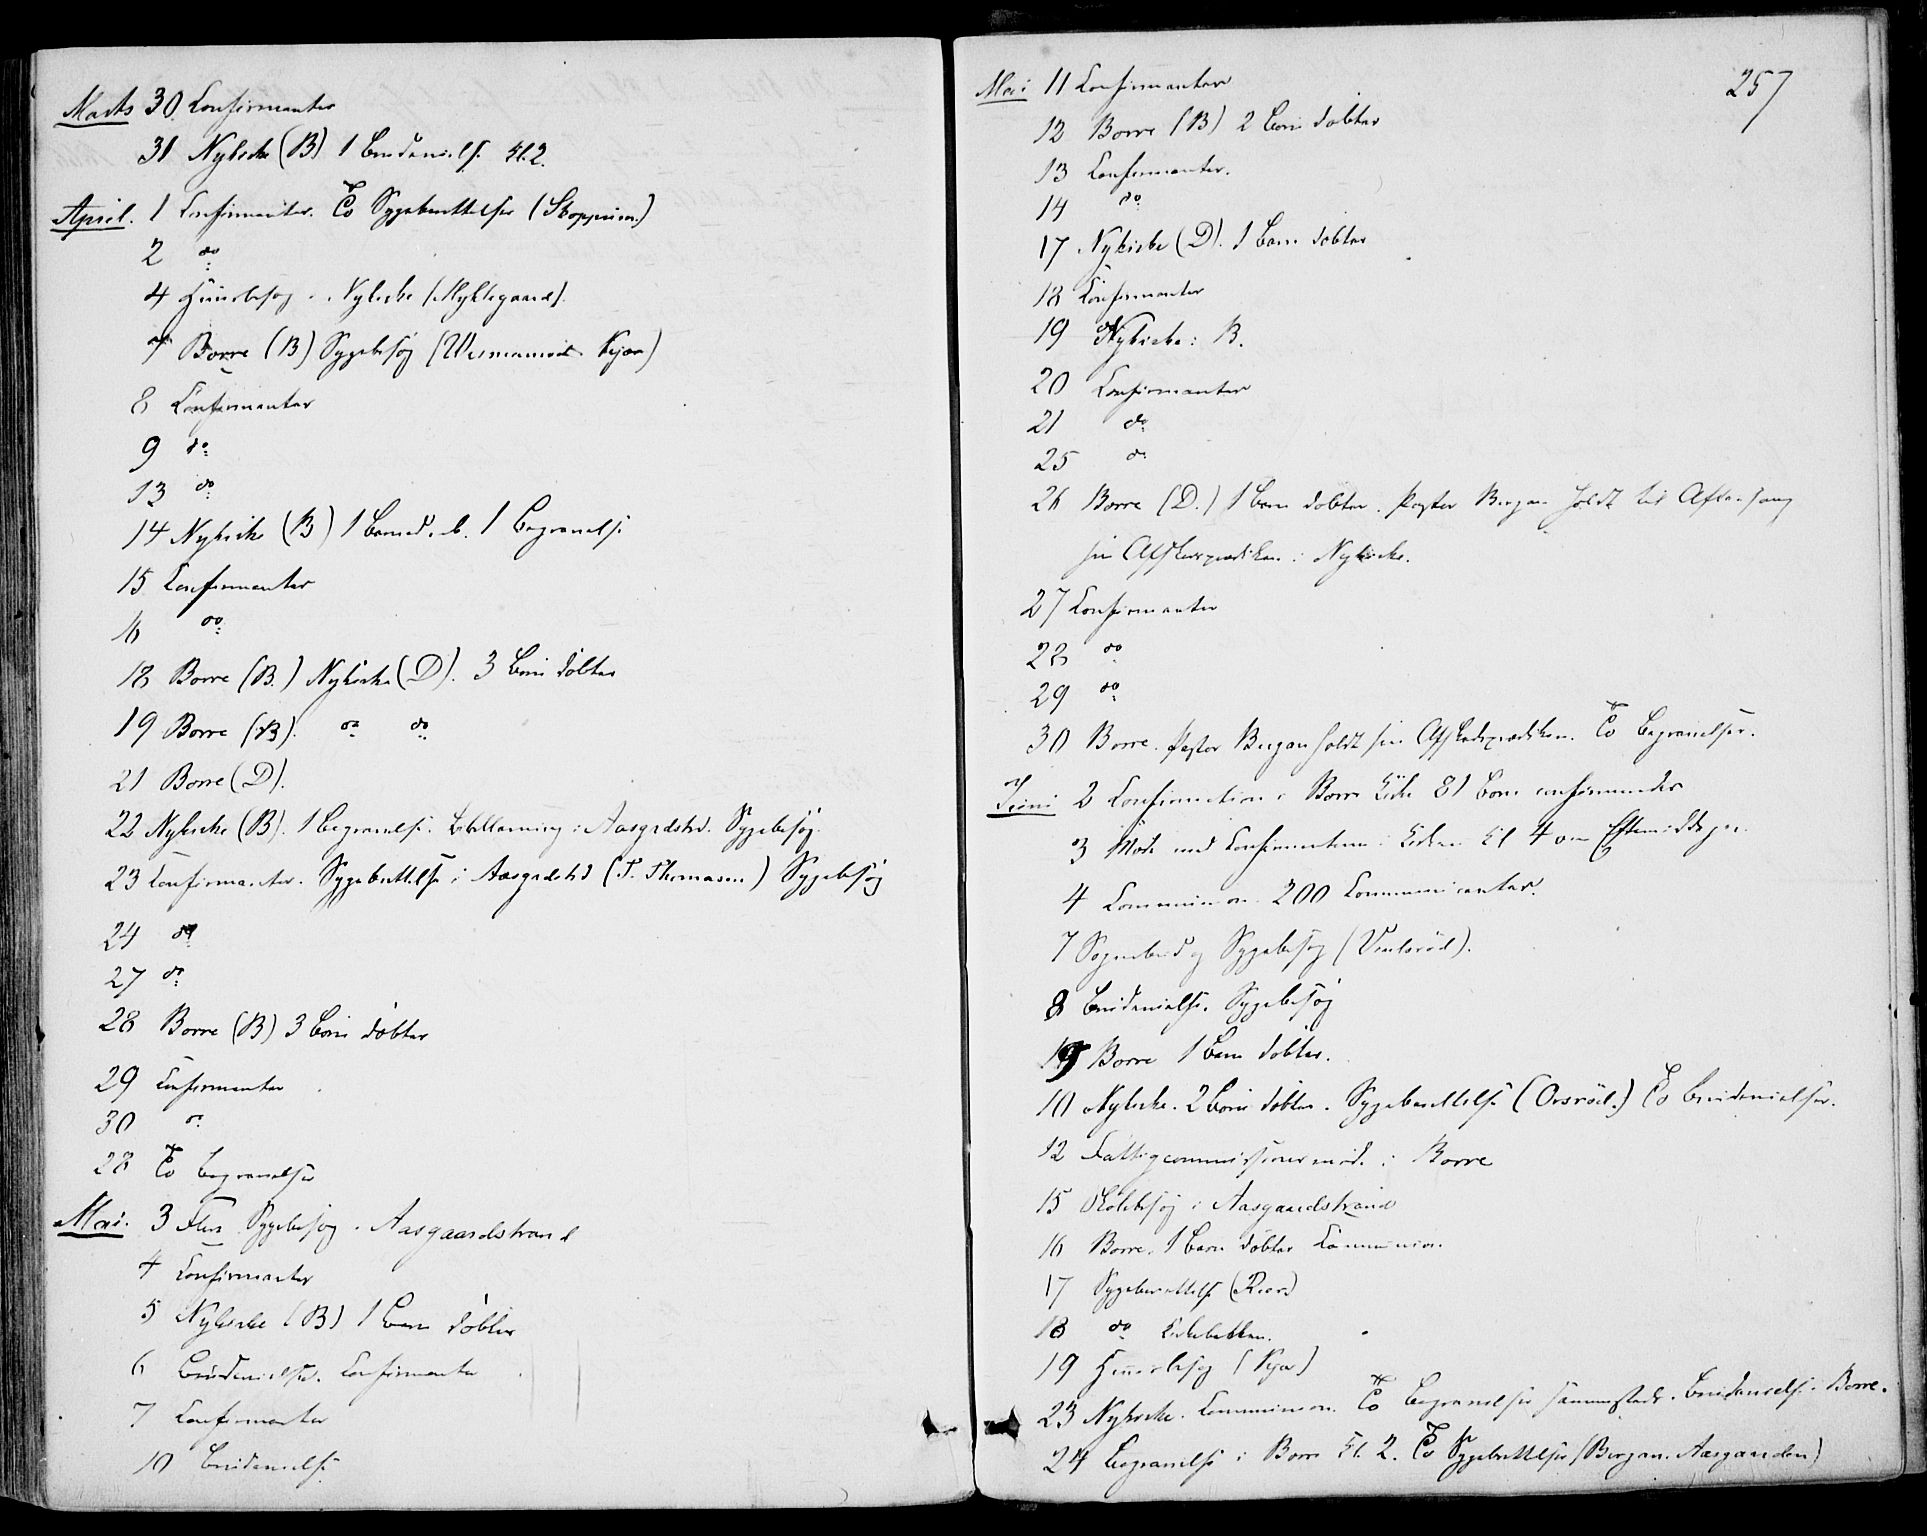 Marts 30 Confirmanter
31 Nykirke (B) 1 Brudevielse Kl. 2.
April. 1 Confirmanter. To Sygeberettelser (Skoppum.)
2 do
4 Huusbesøg i Nykirke (Myklegaard).
7 Borre (B) Sygebesøg ( Kjær)
8 Confirmanter
9 do
13 do
14 Nykirke (B) 1 Barned. 1 Begravelse
15 Confirmanter
16 do
18 Borre (B.) Nykirke (D). 3 Børn døbter
19 Borre (B). do do
21 Borre (D).
22 Nykirke (B). 1 Begravelse. i Aasgrdstrd. Sygebesøg.
23 Confirmanter. Sygeberettelse i Aasgrdstrd (T. Thomasen) Sygebesøg
24 do
27 do
28 Borre (B) 3 Børn døbter
29 Confirmanter
30 do
28 To Begravelser
Mai. 3 Flere Sygebesøg i Aasgaardstrand
4 Confirmanter
5 Nykirke (B) 1 Barn døbter
6 Brudevielse. Confirmanter
7 Confirmanter
10 Brudevielse
257
Mai 11 Confirmanter
12 Borre (B) 2 Børn døbter
13 Confirmanter.
14 do
17 Nykirke (D). 1 Barn døbter
18 Confirmanter
19 Nykirke: B.
20 Confirmanter
21 do
25 do
26 Borre (D.) 1 Barn døbter. Pastor Bergan holdt til Aftensang
sin Afskedsprædiken i Nykirke.
27 Confirmanter
28 do
29 do
30 Borre. Pastor Bergan holdt sin Afskedsprædiken. To Begravelser.
Juni 2 Confirmation i Borre Kirke 81 Børn confirmander
3 Møde med Confirmanterne i Kirken Kl 4 om Eftermiddagen.
4 Communion. 200 Communicanter.
7 Sognebud og Sygebesøg ().
8 Brudevielse. Sygebesøg
9 Borre 1 Barn døbter.
10 Nykirke. 2 Børn døbter. Sygeberettelse (Orsröd.) To Brudevielser.
12 Fattigcommissionsmøde i Borre
15 Skolebesøg i Aasgaardstrand
16 Borre. 1 Barn døbter Communion
17 Sygeberettelse ()
18 do Kirkebakken.
19 Huusbesøg (Kjær)
23 Nykirke. Communion. To Begravelser sammesteds. Brudevielse i Borre.
24 Begravelse i Borre Kl. 2. To Sygeberettelser (Bergan. Aasgaarden)